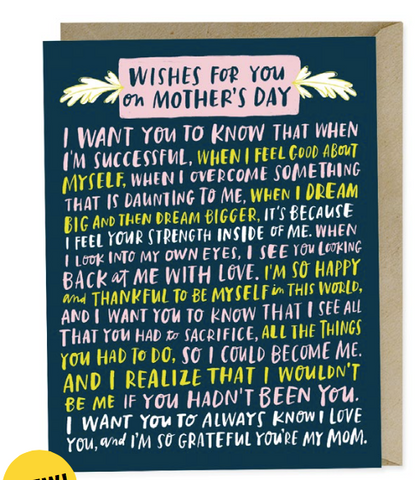 WISHES FOR YOU
on MOTHER'S DAY
I WANT YOU TO KNOW THAT WHEN
I'M SUCCESSFUL, WHEN I FEEL GOOD ABOUT
MYSELF, WHEN I OVERCOME SOMETHING
THAT IS DAUNTING TO ME, WHEN I DREAM
BIG AND THEN DREAM BIGGER, IT'S BECAUSE
I FEEL YOUR STRENGTH INSIDE OF ME. WHEN
I LOOK INTO MY OWN EYES, I SEE YOU LOOKING
BACK at ME WITH LOVE. I'M SO HAPPY
and THANKFUL TO BE MYSELF in THIS WORLD,
AND I WANT YOU TO KNOW THAT I SEE ALL
THAT YOU HAD to SACRIFICE, ALL THE THINGS
YOU HAD TO DO, SO I COULD BECOME ME.
AND I REALIZE THAT I WOULDN'T
BE ME IF YOU HADN'T BEEN YOU.
I WANT YOU TO ALWAYS KNOW I LOVE
YOU, and I'M SO GRATEFUL YOU'RE MY MOM.